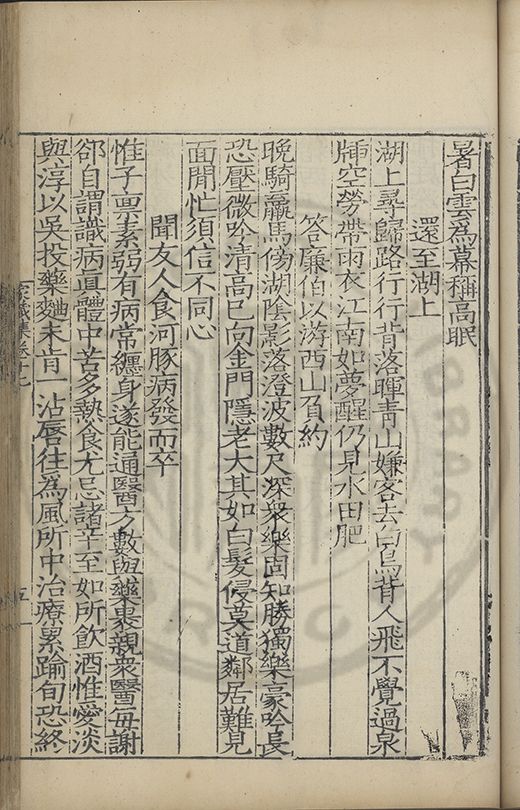 暑白雲為幕稱高眠
還至湖上
湖上尋歸路行行背落暉青山嫌客去白鳥背人飛不覺過泉
牐空勞帶雨衣江南如夢醒仍見水田肥
答廉伯以游西山負約
晚騎羸馬傍湖陰影落澄波數尺深衆樂固知勝獨樂豪吟長
恐壓微吟清高已向金門隱老大其如白髮侵莫道鄰居難見
面閒忙須信不同心
聞友人食河豚病發而卒
惟子稟素弱有病常纏身遂能通醫方數與藥裹親衆醫毋謝
郤自謂識病眞體中苦多熱食尤忌諸辛至如所飲酒惟愛淡
與淳以吳投藥麯未肯一沾唇往為風所中治療累踰旬恐終